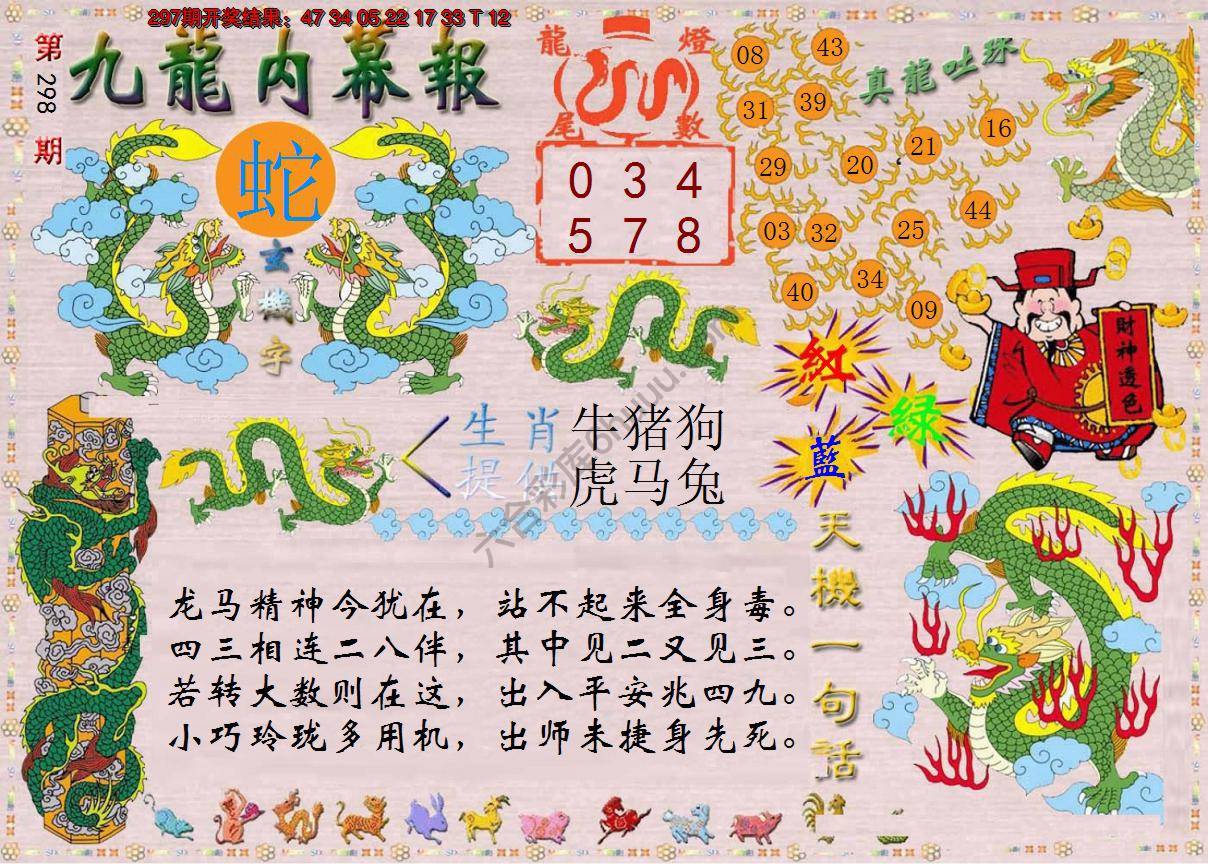 297期开奖结果：47 34 05 22 17 33 T 12
第298期
九龍内幕報
蛇
玄機字
龍燈
尾數
0 3 4
5 7 8
真龍吐珠
08 43
31 39
29 20 21 16
03 32 25 44
40 34 09
財神透色
紅
綠
藍
生肖 牛猪狗
提供 虎马兔
天機一句話
龙马精神今犹在，站不起来全身毒。
四三相连二八伴，其中见二又见三。
若转大数则在这，出入平安兆四九。
小巧玲珑多用机，出师未捷身先死。